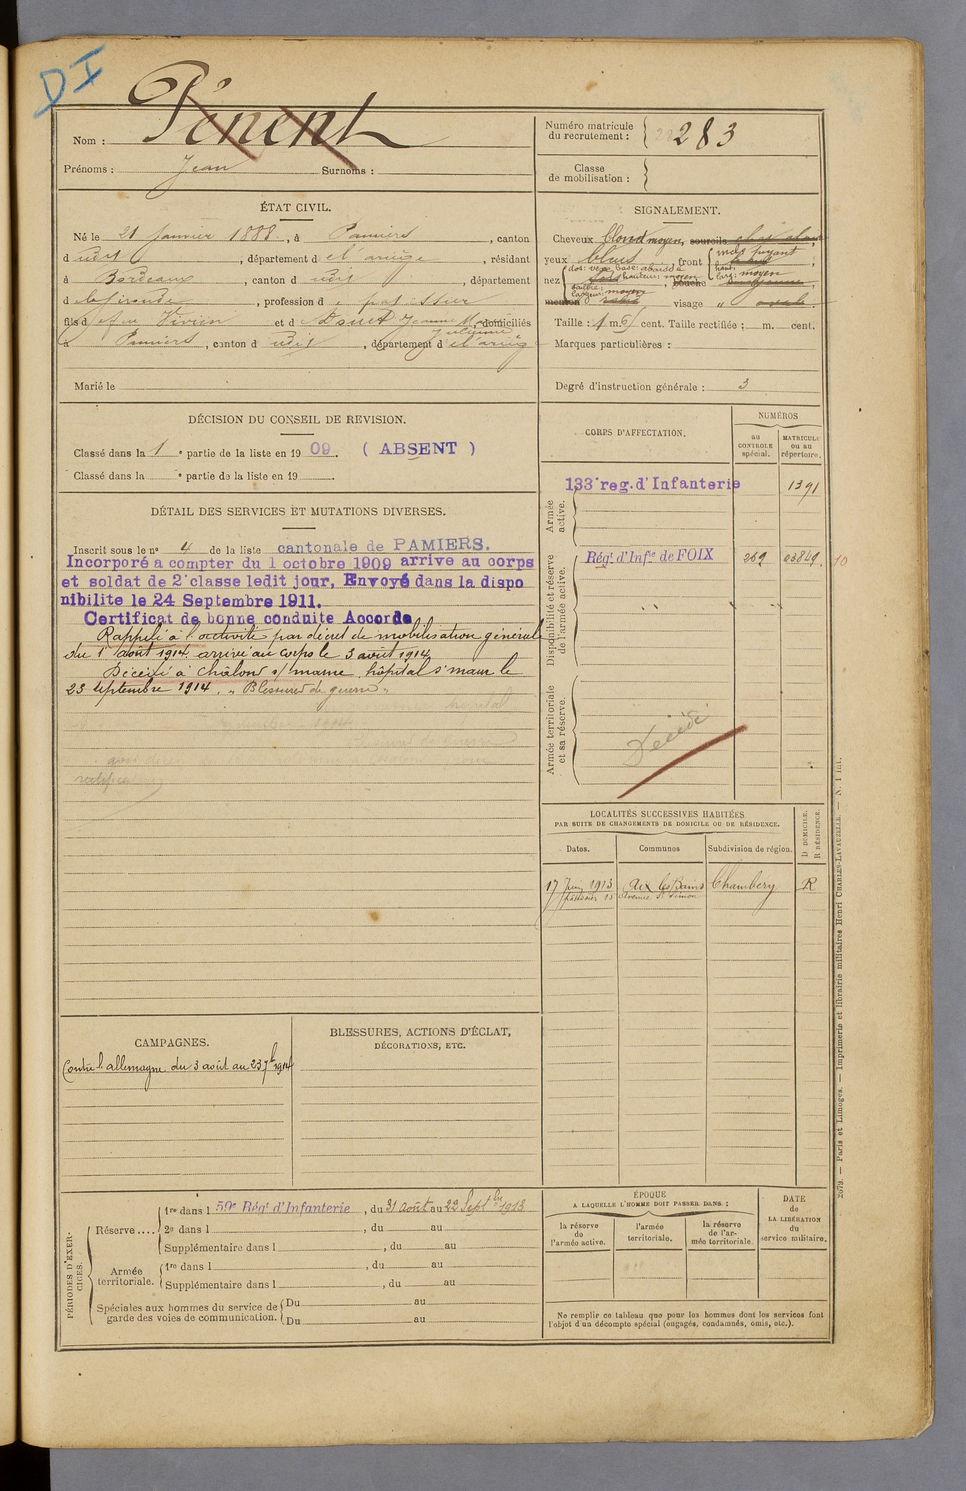 DI
Nom : Pénent
Prénoms : Jean Surnoms :
Numéro matricule du recrutement : 283
Classe de mobilisation :
ÉTAT CIVIL.
Né le 21 janvier 1888, à Pamiers, canton
dudit, département de l'ariège, résidant
à Bordeaux, canton dudit, département
d la gironde, profession de patissier
fils d et d Jeanne domiciliés
Julienne
à Pamiers, canton dudit, département de l'ariège
Marié le
SIGNALEMENT.
Cheveux blond moyen, sourcils
yeux bleus, front moy fuyant
haut:
larg: moyen
nez dos: base: abaissée
hauteur: moyen, bouche
saillie:
largeur: moyen
menton visage ovale
Taille : 1 m. cent. Taille rectifiée : m. cent.
Marques particulières :
Degré d'instruction générale : 3
DÉCISION DU CONSEIL DE REVISION.
Classé dans la 1e partie de la liste en 1909. ( ABSENT )
Classé dans la e partie de la liste en 19 .
DÉTAIL DES SERVICES ET MUTATIONS DIVERSES.
Inscrit sous le nº 4 de la liste cantonale de PAMIERS.
Incorporé a compter du 1 octobre 1909 arrive au corps
et soldat de 2e classe ledit jour, Envoyé dans la dispo
nibilite le 24 Septembre 1911.
Certificat de bonne conduite Accordé
Rappelé à l'activité par décret de mobilisation générale
du 1er août 1914, arrivé au corps le 3 août 1914
Décédé à Châlons s/ marne hôpital St maur le
23 septembre 1914. "Blessures de guerre"
CORPS D'AFFECTATION.
NUMÉROS
au CONTROLE spécial.
MATRICULE ou au répertoire.
Armée active.
133e reg. d'Infanterie 1391
Disponibilité et réserve de l'armée active.
Régt d'Infie de FOIX 269 03849. 10
" " " "
Armée territoriale et sa réserve.
Décédé
LOCALITÉS SUCCESSIVES HABITÉES
PAR SUITE DE CHANGEMENTS DE DOMICILE OU DE RÉSIDENCE.
D. DOMICILE. R. RÉSIDENCE.
Dates. Communes Subdivision de région.
17 Juin 1913 Aix les Bains Chambéry R
CAMPAGNES.
Contre l'allemagne du 3 août au 23 7bre 1914
BLESSURES, ACTIONS D'ÉCLAT,
DÉCORATIONS, ETC.
PÉRIODES D'EXERCICES.
Réserve ....
1re dans l 59e Régt d'Infanterie, du 31 Août au 22 Septbre 1913
2e dans l , du au
Supplémentaire dans l , du au
Armée territoriale.
1re dans l , du au
Supplémentaire dans l , du au
Spéciales aux hommes du service de garde des voies de communication.
Du au
Du au
ÉPOQUE
A LAQUELLE L'HOMME DOIT PASSER DANS :
la réserve de l'armée active.
l'armée territoriale.
la réserve de l'armée territoriale.
DATE de LA LIBÉRATION du service militaire.
Ne remplir ce tableau que pour les hommes dont les services font
l'objet d'un décompte spécial (engagés, condamnés, omis, etc.).
2079. — Paris et Limoges. — Imprimerie et librairie militaires Henri CHARLES-LAVAUZELLE. — N. 1 int.